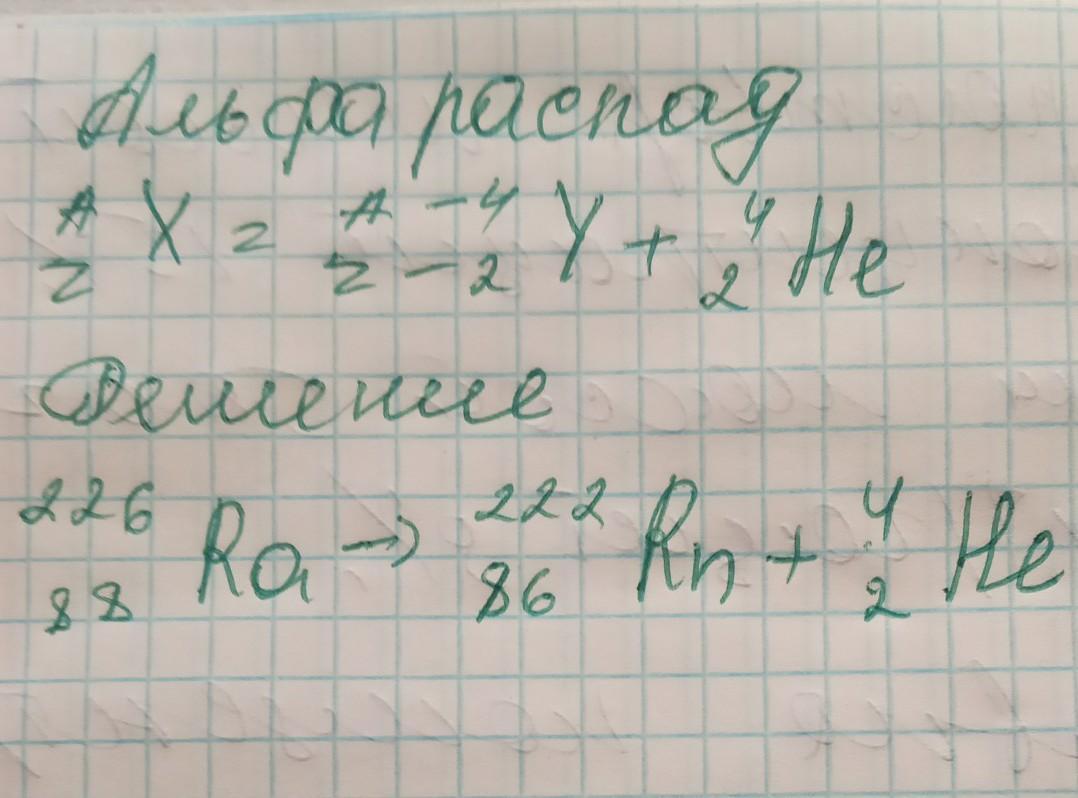 Альфа распад
ᴬ_Z X = ᴬ⁻⁴_Z₋₂ Y + ⁴₂He
Решение
²²⁶₈₈Ra → ²²²₈₆Rn + ⁴₂He